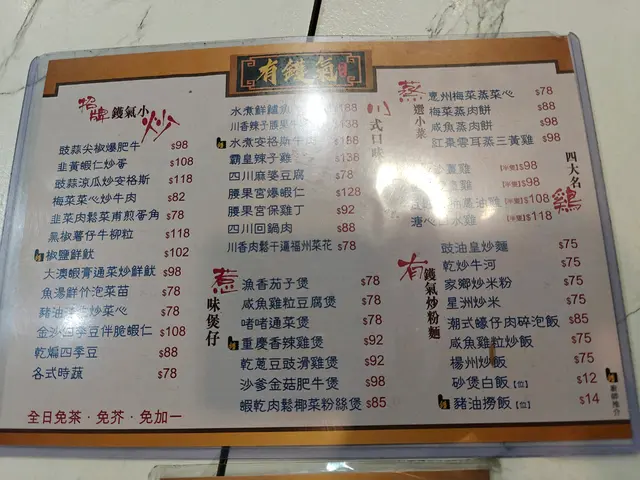 有鑊氣
招牌鑊氣小炒
豉蒜尖椒爆肥牛 $98
韭黃蝦仁炒哥 $108
豉蒜涼瓜炒安格斯 $118
梅菜菜心炒牛肉 $82
韭菜肉鬆菜甫煎薯角 $78
黑椒薯仔牛柳粒 $118
椒鹽鮮魷 $102
大澳蝦膏通菜炒鮮魷 $98
魚湯鮮竹泡菜苗 $78
豬油 炒菜心 $78
金沙四季豆伴脆蝦仁 $108
乾煸四季豆 $88
各式時蔬 $78
全日免茶·免芥·免加一
川式口味
水煮鮮鱸魚 $188
川香辣子腰果牛 $138
水煮安格斯牛肉 $188
霸皇辣子雞 $138
四川麻婆豆腐 $78
腰果宮爆蝦仁 $128
腰果宮保雞丁 $92
四川回鍋肉 $88
川香肉鬆干逼福州菜花 $78
惹味煲仔
漁香茄子煲 $78
咸魚雞粒豆腐煲 $78
啫啫通菜煲 $78
重慶香辣雞煲 $92
乾蔥豆豉滑雞煲 $92
沙爹金菇肥牛煲 $98
蝦乾肉鬆椰菜粉絲煲 $85
蒸還小菜
惠州梅菜蒸菜心 $78
梅菜蒸肉餅 $88
咸魚蒸肉餅 $98
紅棗雲耳蒸三黃雞 $98
四大名雞
雞 【半隻】$98
雞 【半隻】$98
蔥油雞 【半隻】$108
水雞 【半隻】$118
有鑊氣炒粉麵
豉油皇炒麵 $75
乾炒牛河 $75
家鄉炒米粉 $75
星洲炒米 $75
潮式蠔仔肉碎泡飯 $85
咸魚雞粒炒飯 $75
楊州炒飯 $75
砂煲白飯【位】 $12
豬油撈飯【位】 $14
廚師推介